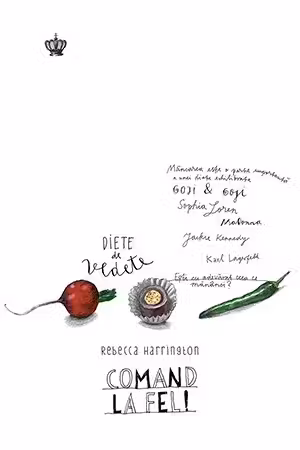 Mâncarea este o parte importantă
a unei diete echilibrate
GOJI & Goji
Sophia Loren
Madonna
Jackie Kennedy
Karl Lagerfeld
Este cu adevărat ceea ce
mănânci?
DIETE
de
vedete
Rebecca Harrington
COMAND
LA FEL!